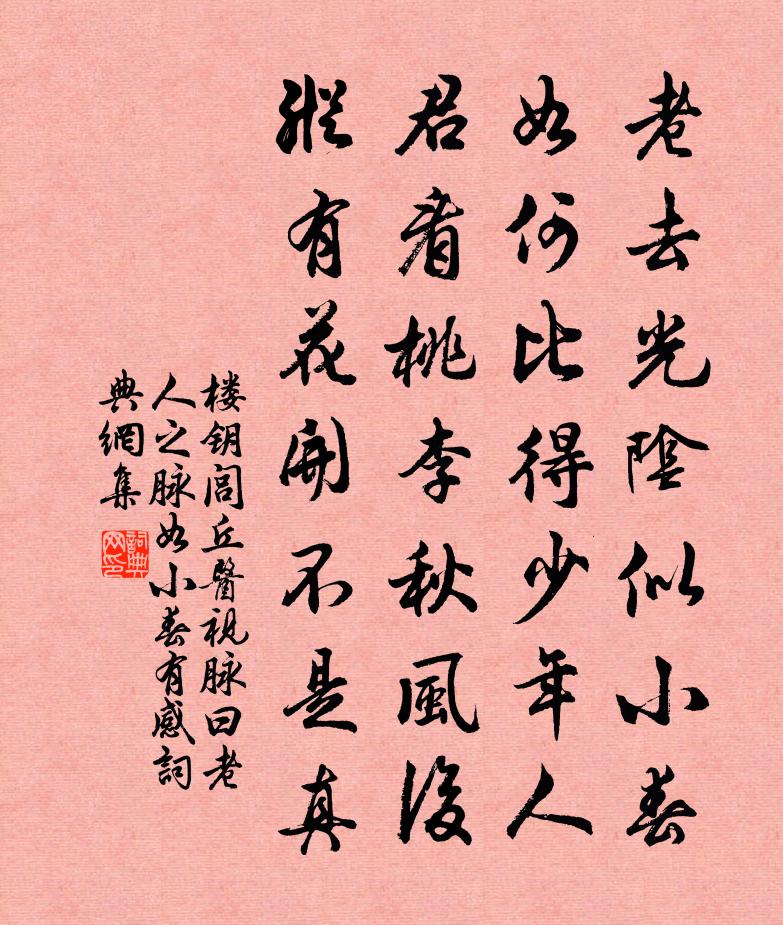 老去光陰似小春
如何比得少年人
君看桃李秋風後
縱有花開不是真
楼钥閭丘醫視脉曰老
人之脉如小春有感詞
典網集
詞典
网印